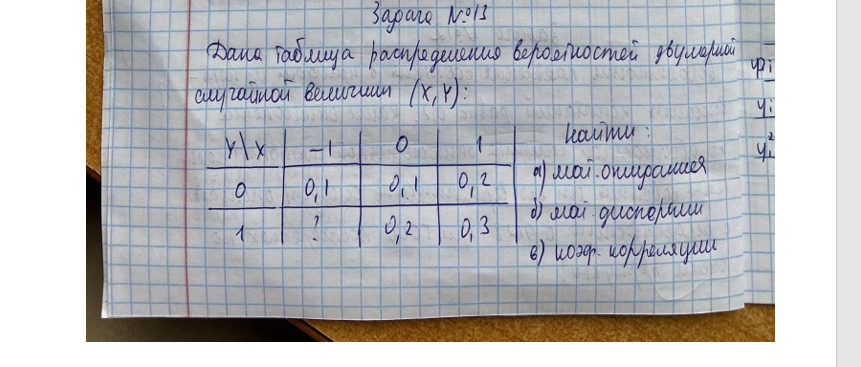 Задача №13
Дана таблица распределения вероятностей двумерной
случайной величины (X,Y):
Y\X -1 0 1
0 0,1 0,1 0,2
1 ? 0,2 0,3
Найти:
а) мат. ожидания
б) мат. дисперсии
в) коэф. корреляции